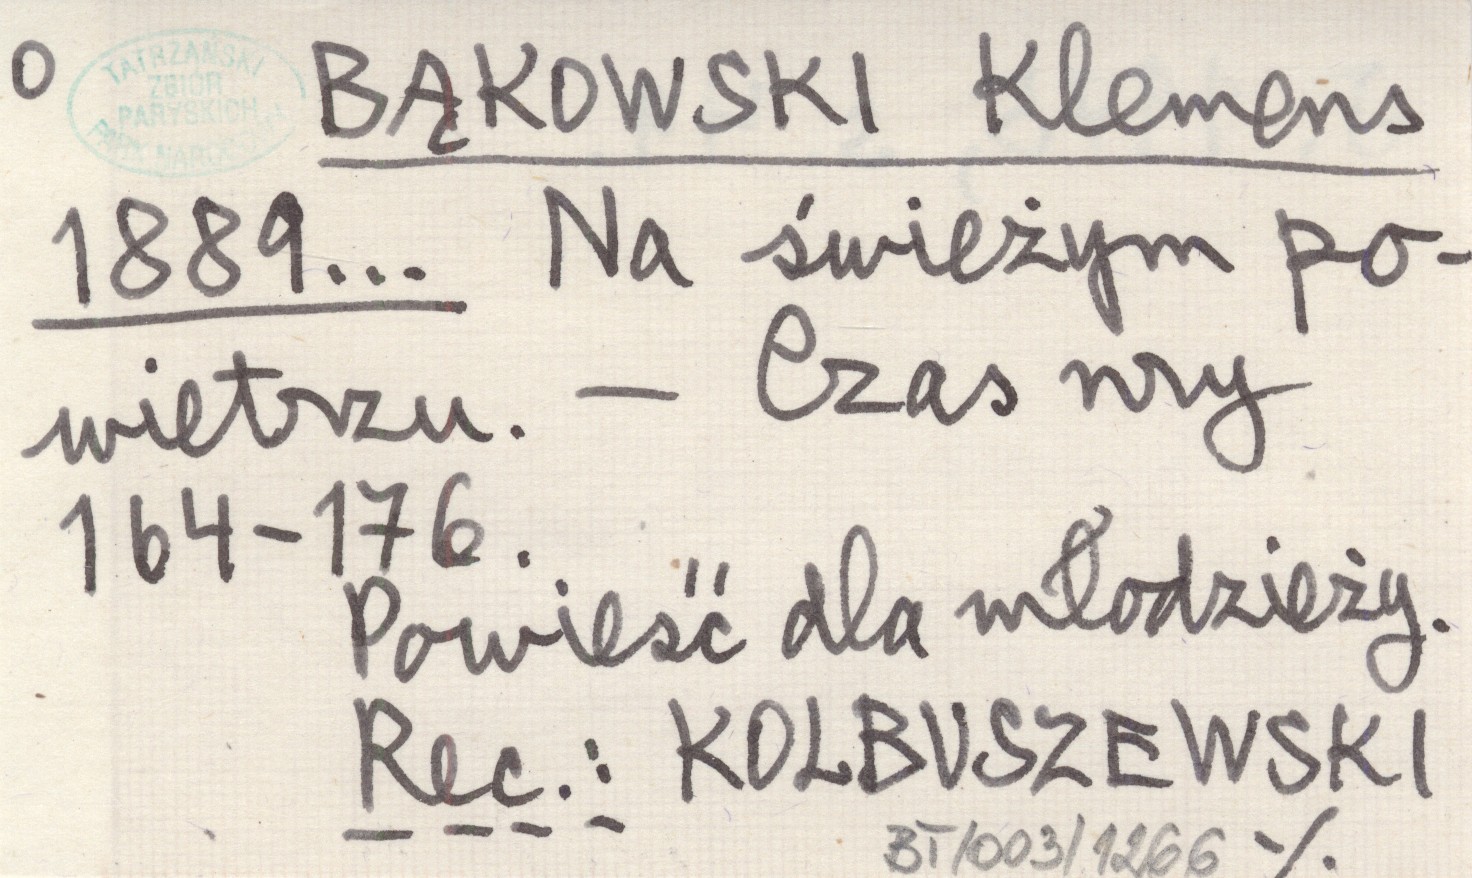 O TATRZAŃSKI
ZBIÓR
PARYSKICH
PARK NARODOWY
BĄKOWSKI Klemens
1889... Na świeżym po-
wietrzu. — Czas nry
164-176.
Powieść dla młodzieży.
Rec.: KOLBUSZEWSKI
BT/003/1266 ./.